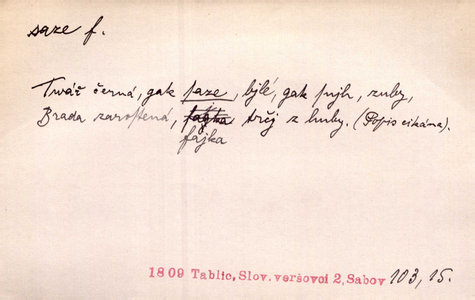 saze f.
Twář černá, gak saze, bjlé, gak snjh, zuby,
Brada zarostená, fajka trčj z huby. (Popis cikána).
fajka
1809 Tablic, Slov. veršovci 2, Sabov 103, 15.